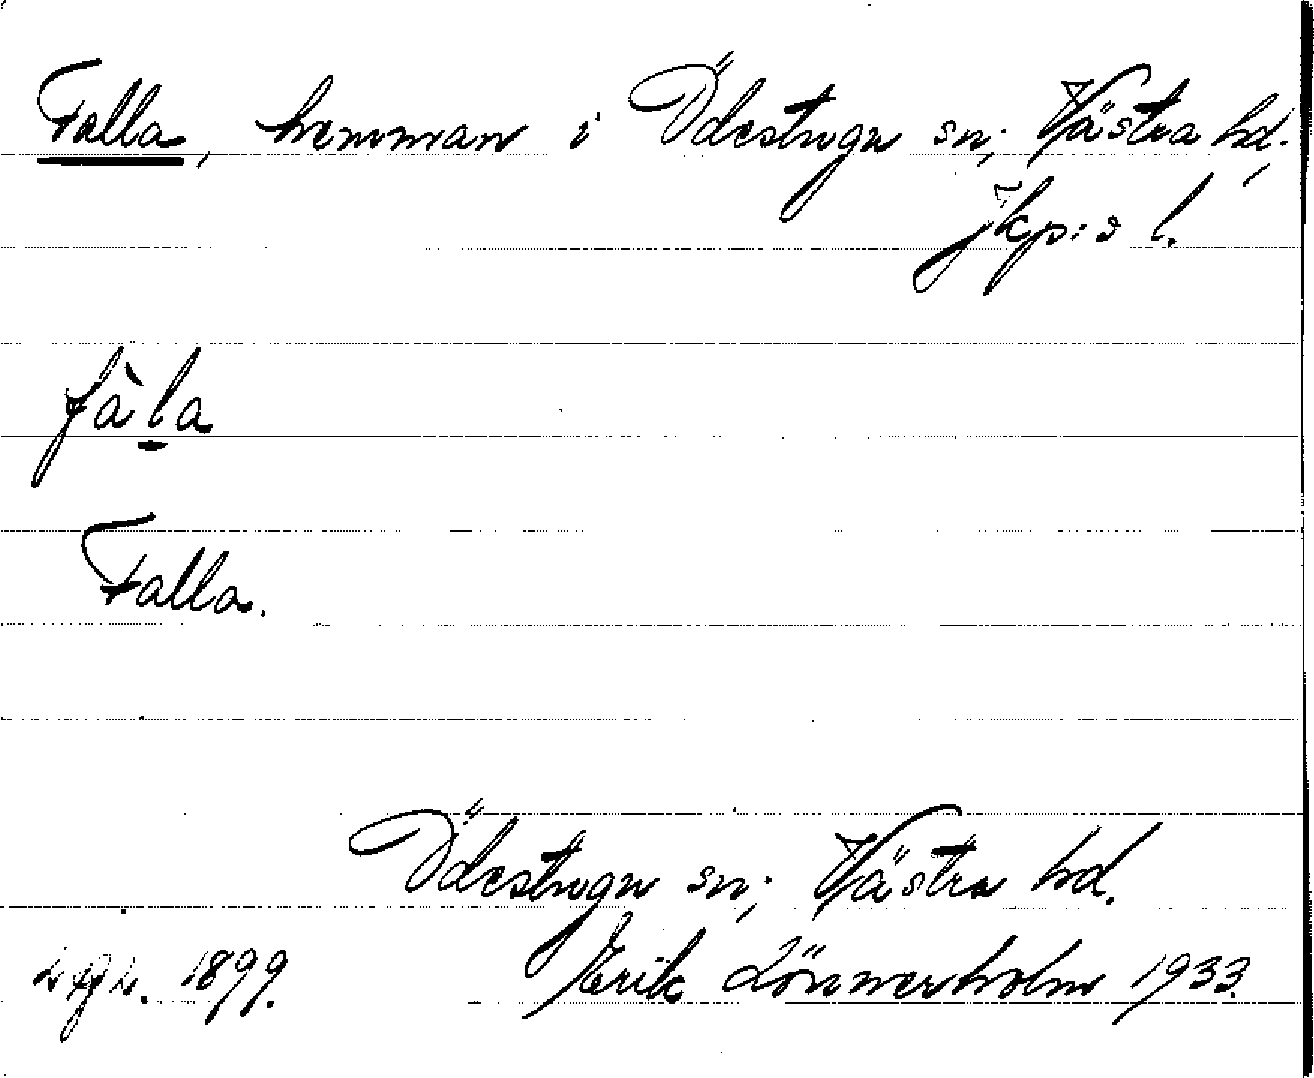 Falla, hemman i Ödestugu sn; Västra hd.,
Jkp:s l.
fàḻa
Falla.
Ödestugu sn; Västra hd.
1899. Erik Lönnerholm 1933.